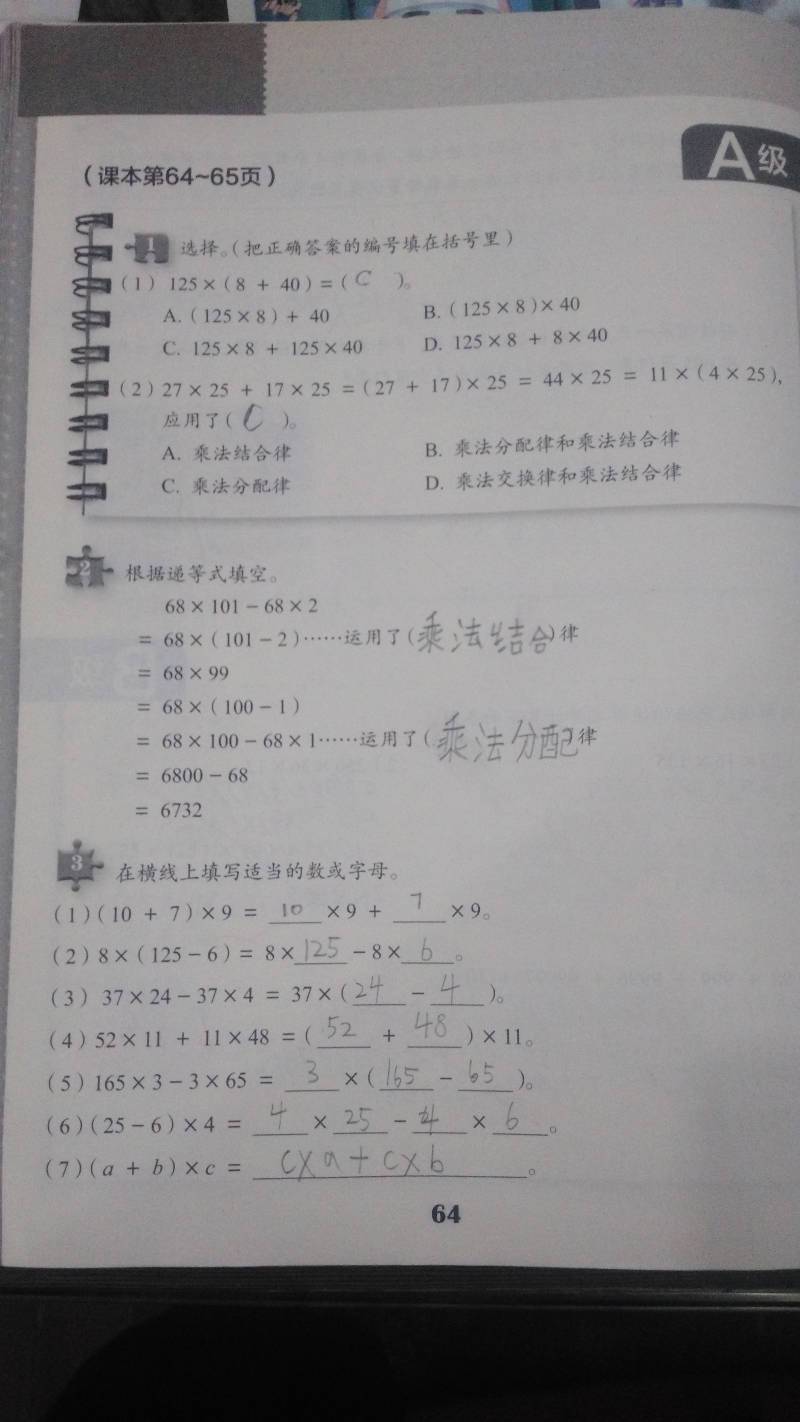 A级
（课本第64~65页）
1 选择。（把正确答案的编号填在括号里）
（1）125×（8 + 40）=（ C ）。
A.（125×8）+ 40 B.（125×8）×40
C. 125×8 + 125×40 D. 125×8 + 8×40
（2）27×25 + 17×25 =（27 + 17）×25 = 44×25 = 11×（4×25），
应用了（ ）。
A. 乘法结合律 B. 乘法分配律和乘法结合律
C. 乘法分配律 D. 乘法交换律和乘法结合律
2 根据递等式填空。
68×101－68×2
= 68×（101－2）……运用了（乘法结合）律
= 68×99
= 68×（100－1）
= 68×100－68×1……运用了（乘法分配）律
= 6800－68
= 6732
3 在横线上填写适当的数或字母。
（1）（10 + 7）×9 = 10 ×9 + 7 ×9。
（2）8×（125－6）= 8×125－8×6。
（3）37×24－37×4 = 37×（24－4）。
（4）52×11 + 11×48 =（52 + 48）×11。
（5）165×3－3×65 = 3 ×（165－65）。
（6）（25－6）×4 = 4 × 25 － 4 × 6。
（7）（a + b）×c = c×a+c×b。
64